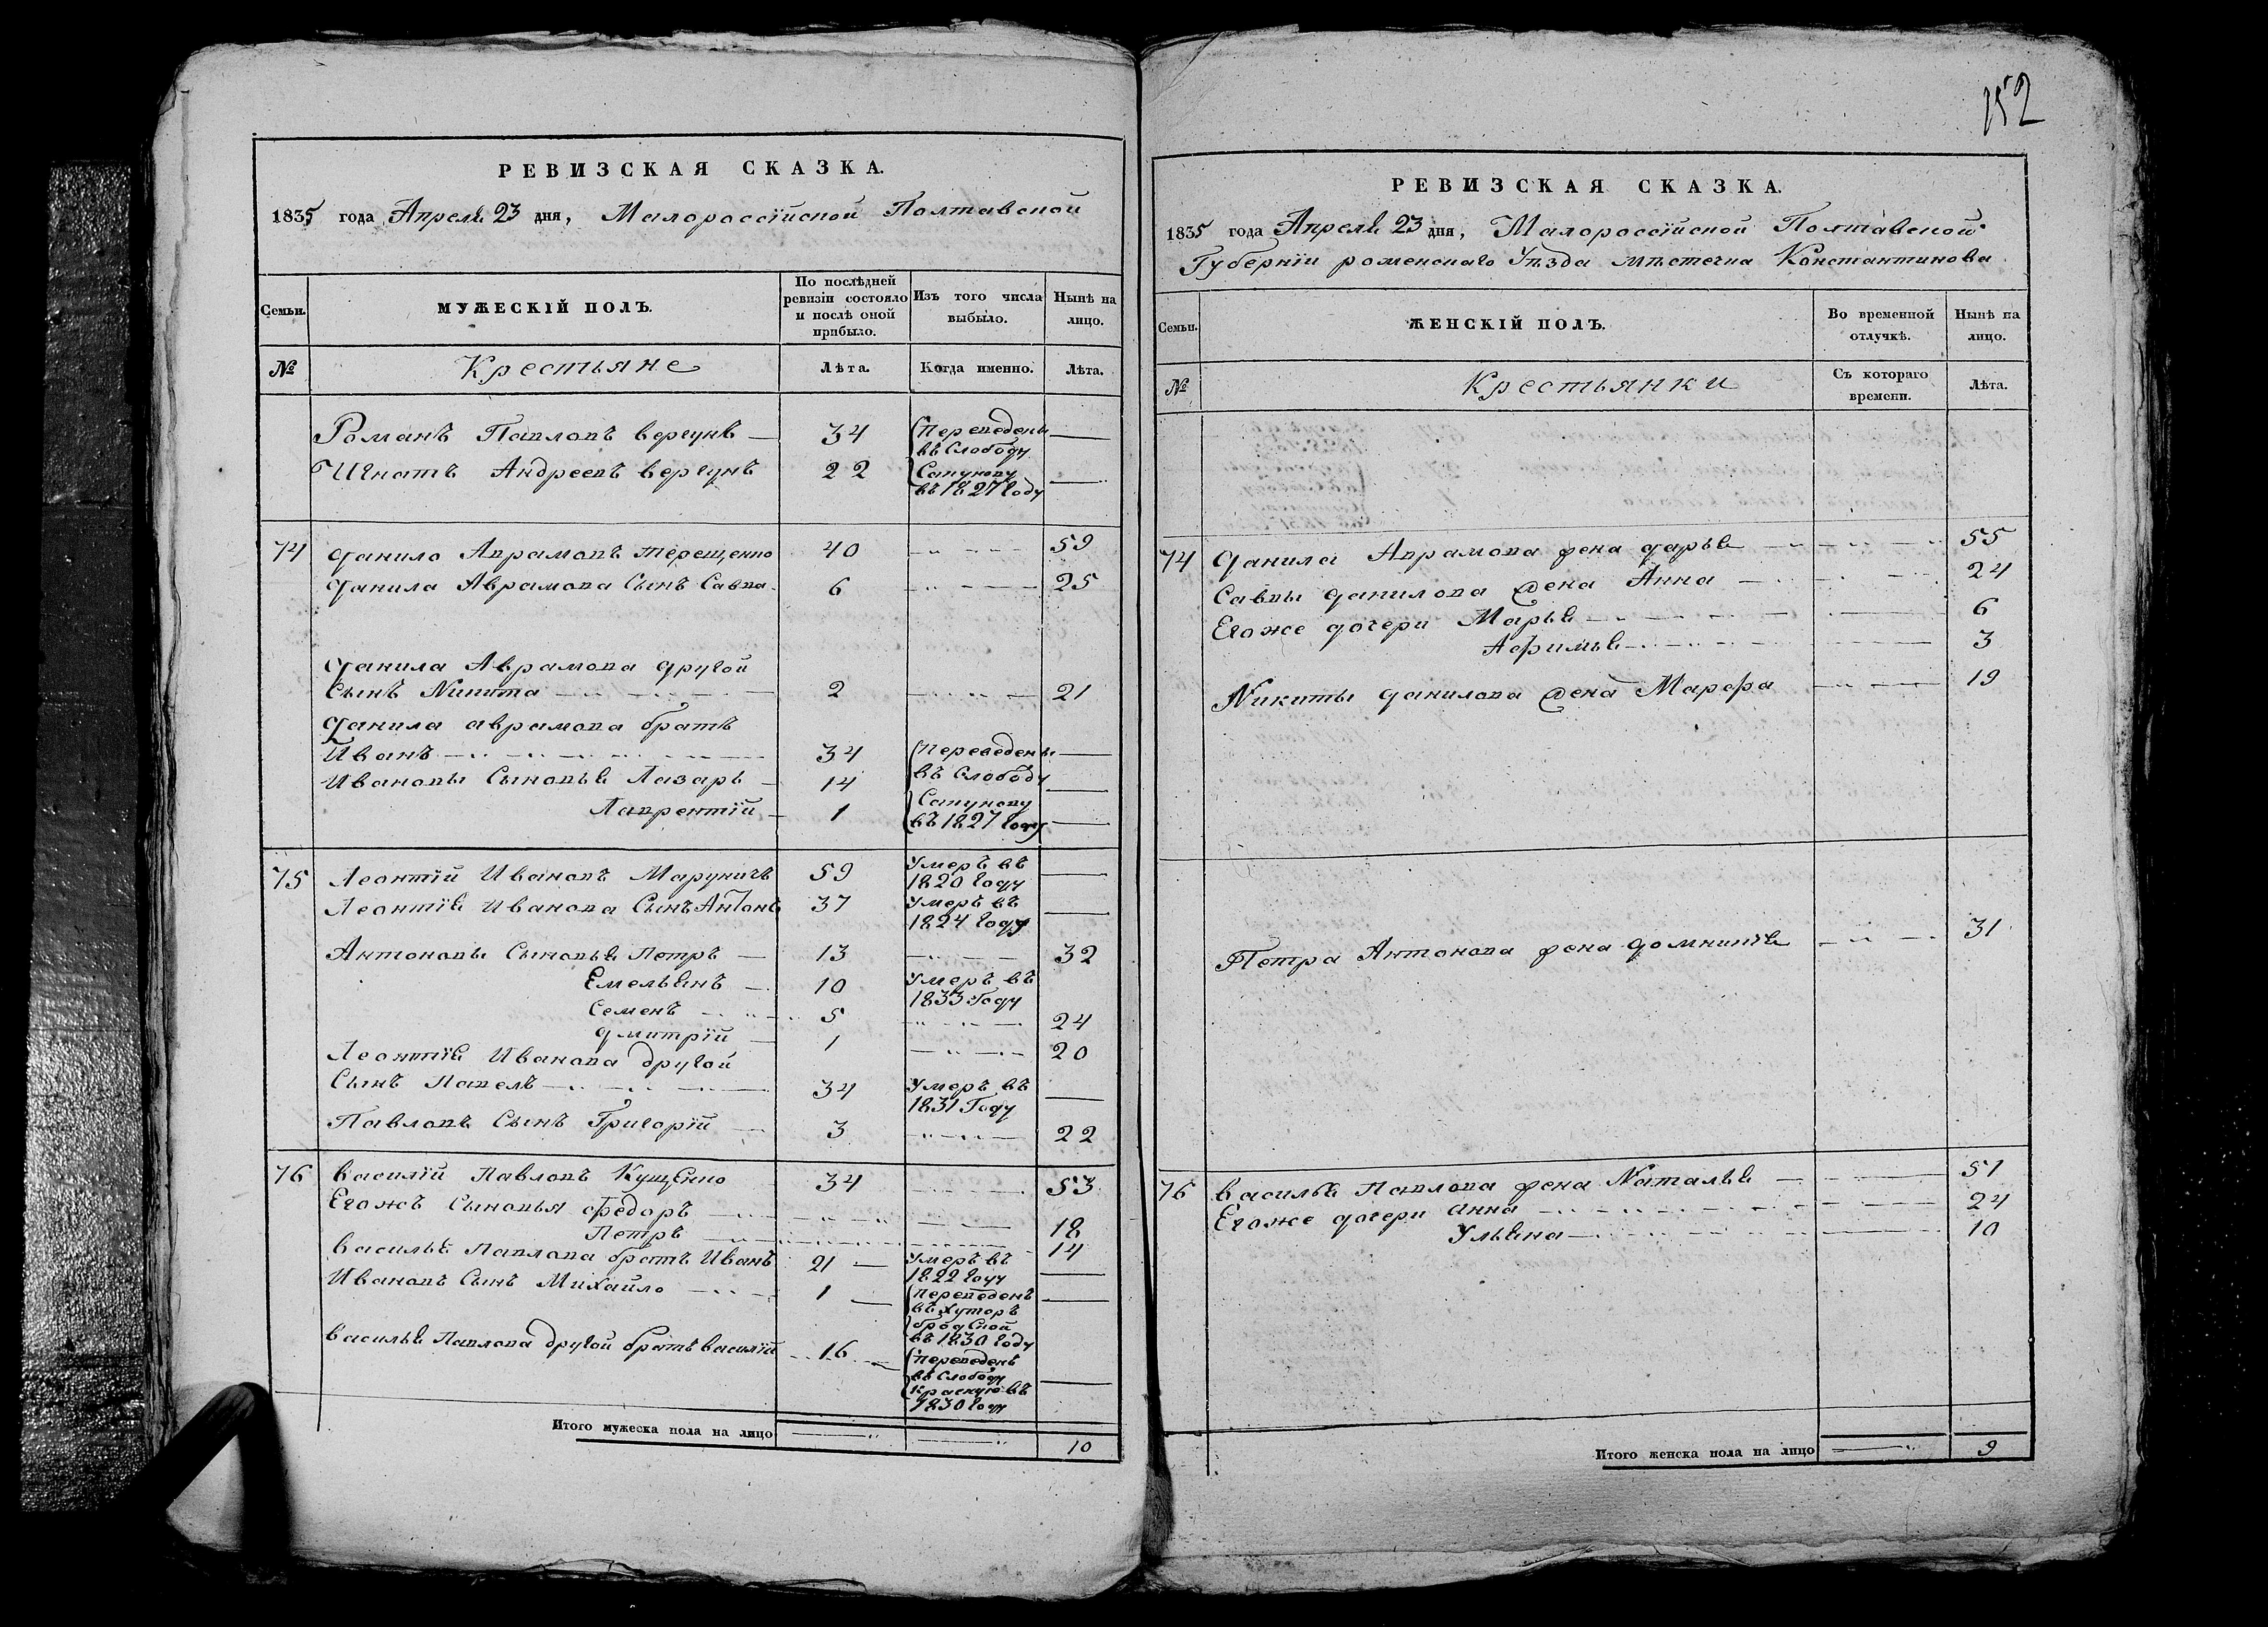 152
РЕВИЗСКАЯ СКАЗКА.
1835 года Апреля 23 дня, Малороссійской Полтавской
Семьи.
МУЖЕСКІЙ ПОЛЪ.
По послѣдней ревизіи состояло и послѣ оной прибыло.
Изъ того числа выбыло.
Нынѣ на лицо.
№
Крестьяне
Лѣта.
Когда именно.
Лѣта.
Романъ Павловъ вергунъ — 34 Переведены —
въ Слободу
Игнатъ Андреевъ вергунъ 22 Сапунову —
въ 1827 году
74 Данило Аврамовъ терещенко 40 59
Данила Аврамова Сынъ Савва 6 25
Данила Аврамова другой
Сынъ Никита 2 21
Данила аврамова братъ
Иванъ 34 Переведены —
Ивановы Сыновья Лазарь 14 въ Слободу —
Лаврентій 1 Сапунову —
въ 1827 году
75 Леонтій Ивановъ Маруничъ 59 Умеръ въ —
1820 году
Леонтія Иванова Сынъ Антонъ 37 Умеръ въ —
1824 году
Антоновы Сыновья Петръ 13 32
Емельянъ 10 Умеръ въ
1833 Году
Семенъ 5 24
Дмитрій 1 20
Леонтія Иванова другой
Сынъ Павелъ 34 Умеръ въ —
1831 Году
Павловъ Сынъ Григорій 3 22
76 василій Павловъ Кущенко 34 53
Егожъ Сыновья Федоръ 18
Петръ 14
василья Павлова братъ Иванъ 21 Умеръ въ —
1822 году
Ивановъ Сынъ Михайло 1 переведенъ —
въ хуторъ
бродской
въ 1830 году
василья Павлова другой братъ василій 16 переведенъ
въ Слободу
красную въ —
1830 году
Итого мужеска пола на лицо 10
РЕВИЗСКАЯ СКАЗКА.
1835 года Апреля 23 дня, Малороссійской Полтавской
Губерніи роменскаго Уѣзда мѣстечка Константинова
Семьи.
ЖЕНСКІЙ ПОЛЪ.
Во временной отлучкѣ.
Нынѣ на лицо.
№
Крестьянки
Съ котораго времени.
Лѣта.
74 Данила Аврамова жена дарья 55
Саввы данилова жена Анна 24
Егоже дочери Марья 6
Афимья 3
Никиты данилова жена Марфа 19
Петра Антонова жена домникія 31
76 василья Павлова жена Наталья 51
Егоже дочери анна 24
Ульяна 10
Итого женска пола на лицо 9